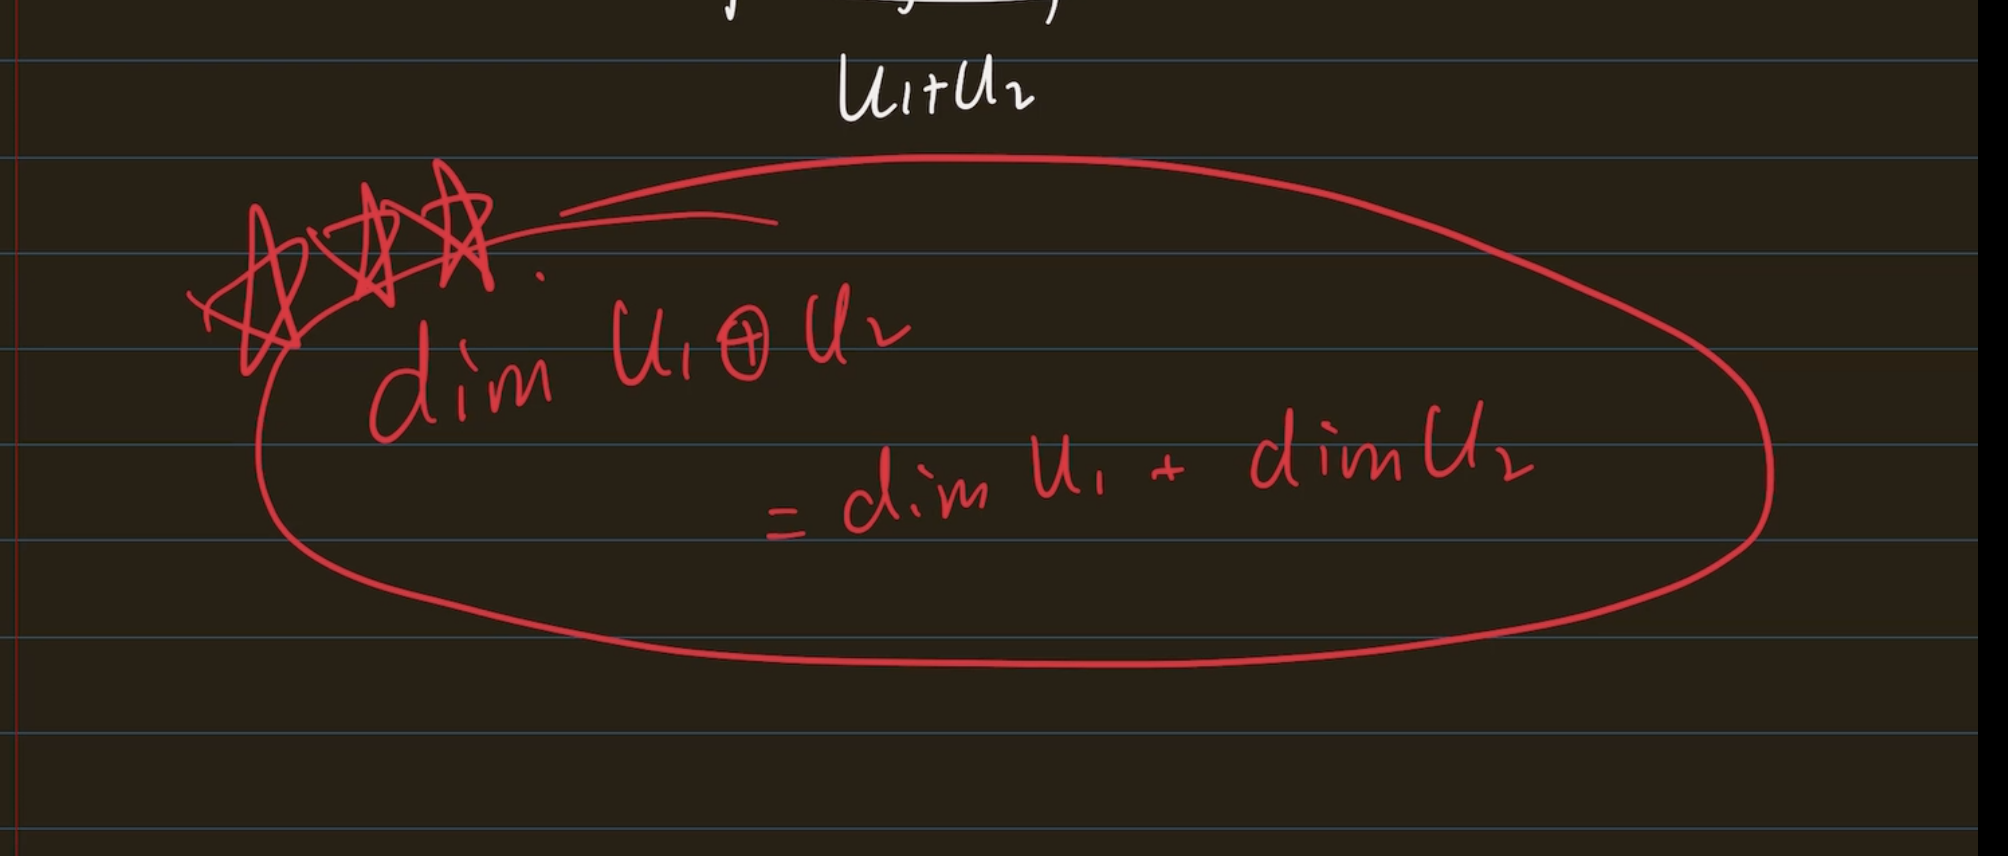 U₁+U₂
dim U₁⊕U₂
= dim U₁ + dim U₂